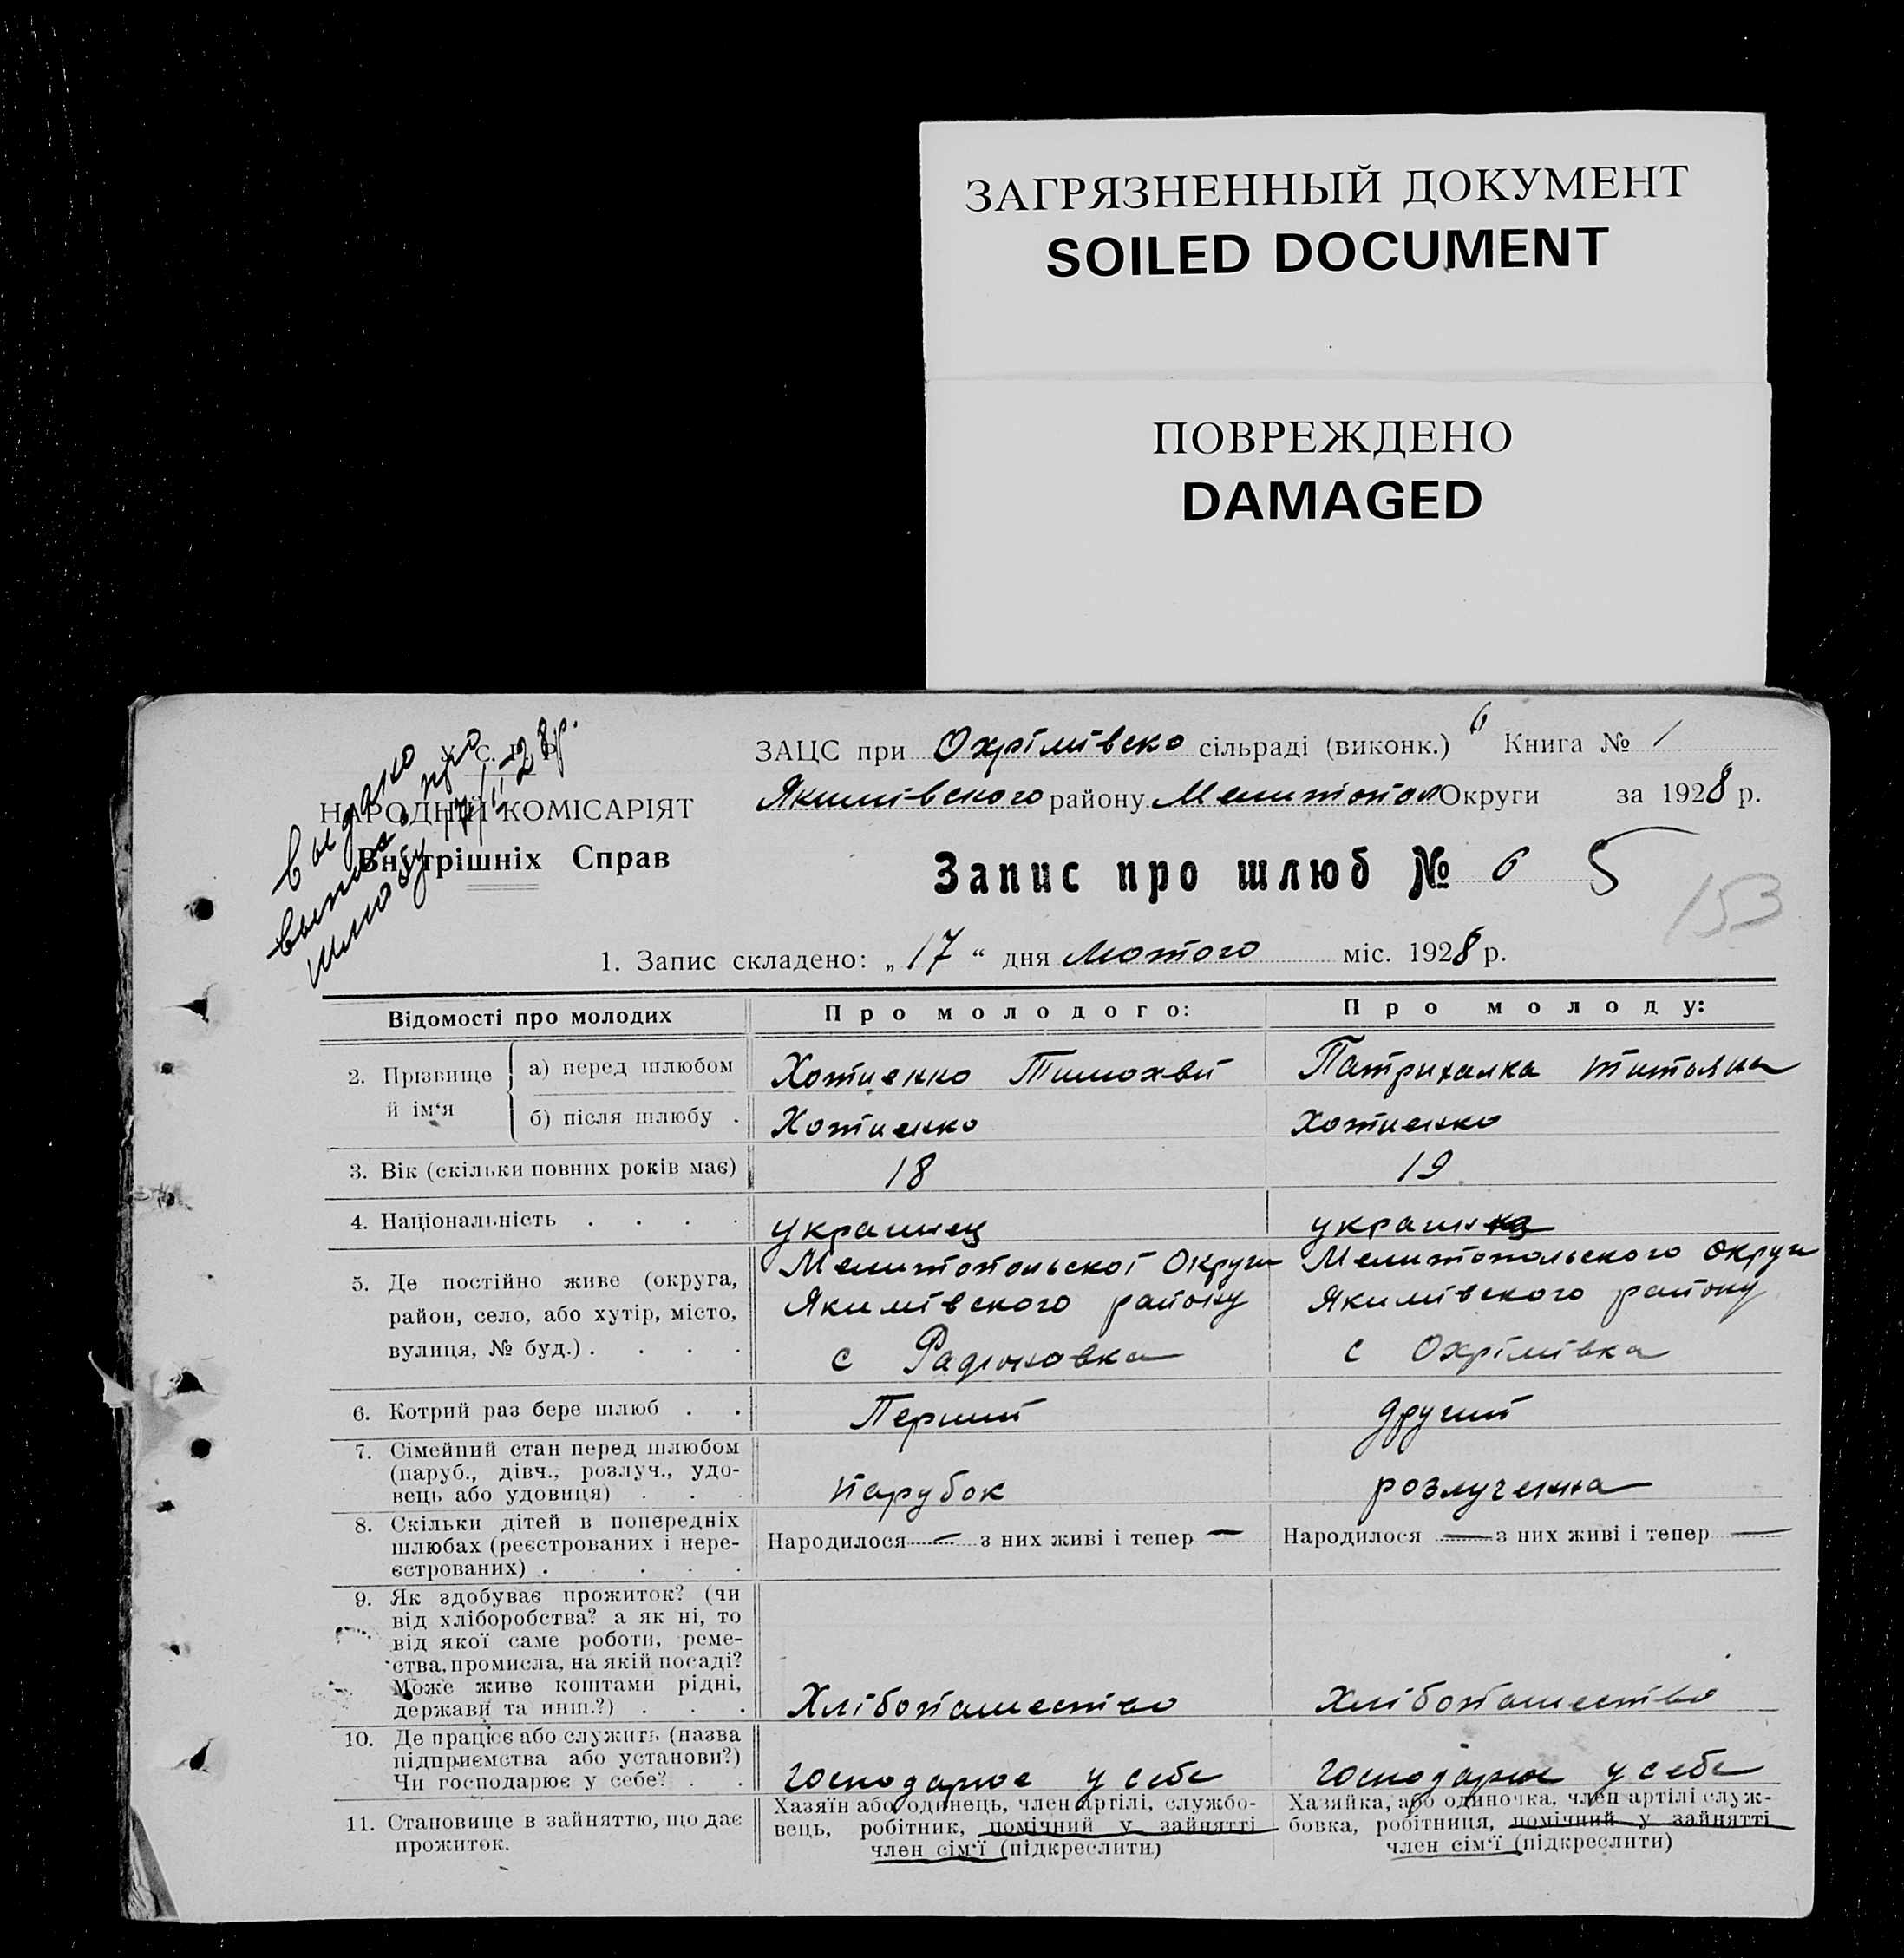 ЗАГРЯЗНЕННЫЙ ДОКУМЕНТ
SOILED DOCUMENT
ПОВРЕЖДЕНО
DAMAGED
У. С. Р. Р.
НАРОДНІЙ КОМІСАРІЯТ
Внутрішніх Справ
видано
выпис про
шлюбу 17/II-28р.
ЗАЦС при Охрімівско сільраді (виконк.) 6 Книга № 1
Якимівского району Мелитопол Округи за 1928 р.
Запис про шлюб № 6 5
153
1. Запис складено: „17“ дня лютого міс. 1928 р.
Відомості про молодих
Про молодого:
Про молоду:
2. Прізвище й ім‘я
а) перед шлюбом
Хотиенко Тимохвй
Патрихалка титьяна
б) після шлюбу .
Хотиенко
Хотиенко
3. Вік (скільки повних років має)
18
19
4. Національність . . . .
украинец
украин
5. Де постійно живе (округа,
район, село, або хутір, місто,
вулиця, № буд.) . . . .
Мелитопольскоі Округи
Якимівского району
с Радионовка
Мелитопольского округи
Якимівского району
с Охрімівка
6. Котрий раз бере шлюб . .
Перший
другий
7. Сімейний стан перед шлюбом
(паруб., дівч., розлуч., удо-
вець або удовиця) . . .
парубок
розлученна
8. Скільки дітей в попередніх
шлюбах (реєстрованих і нере-
єстрованих) . . . . .
Народилося — з них живі і тепер —
Народилося — з них живі і тепер —
9. Як здобуває прожиток? (чи
від хліборобства? а як ні, то
від якої саме роботи, реме-
ства, промисла, на якій посаді?
Може живе коштами рідні,
держави та инш.?) . . .
Хлібопашество
Хлібопашество
10. Де працює або служить (назва
підприємства або установи?)
Чи господарює у себе? . .
господарюе у себе
господарюе у себе
11. Становище в зайняттю, що дає
прожиток.
Хазяїн або одинець, член артілі, службо-
вець, робітник, помічний у зайнятті
член сім‘ї (підкреслити)
Хазяйка, або одиночка, член артілі служ-
бовка, робітниця, помічний у зайнятті
член сім‘ї (підкреслити)